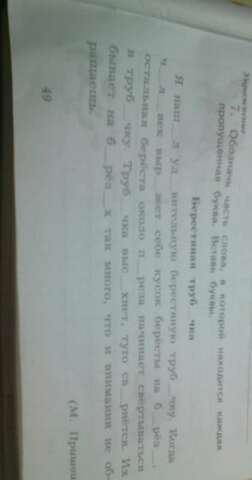 Упражнение
7. Обозначь часть слова, в которой находится каждая
пропущенная буква. Вставь буквы.
Берестяная труб__чка
Я наш__л уд__вительную берестяную труб__чку. Когда
ч__л__век выр__жет себе кусок берёсты на б__рёз__,
остальная берёста около п__реза начинает свёртываться
в труб__чку. Труб__чка выс__хнет, туго св__рнётся. Их
бывает на б__рёз__х так много, что и внимания не об-
ращаешь.
(М. Пришвин
49